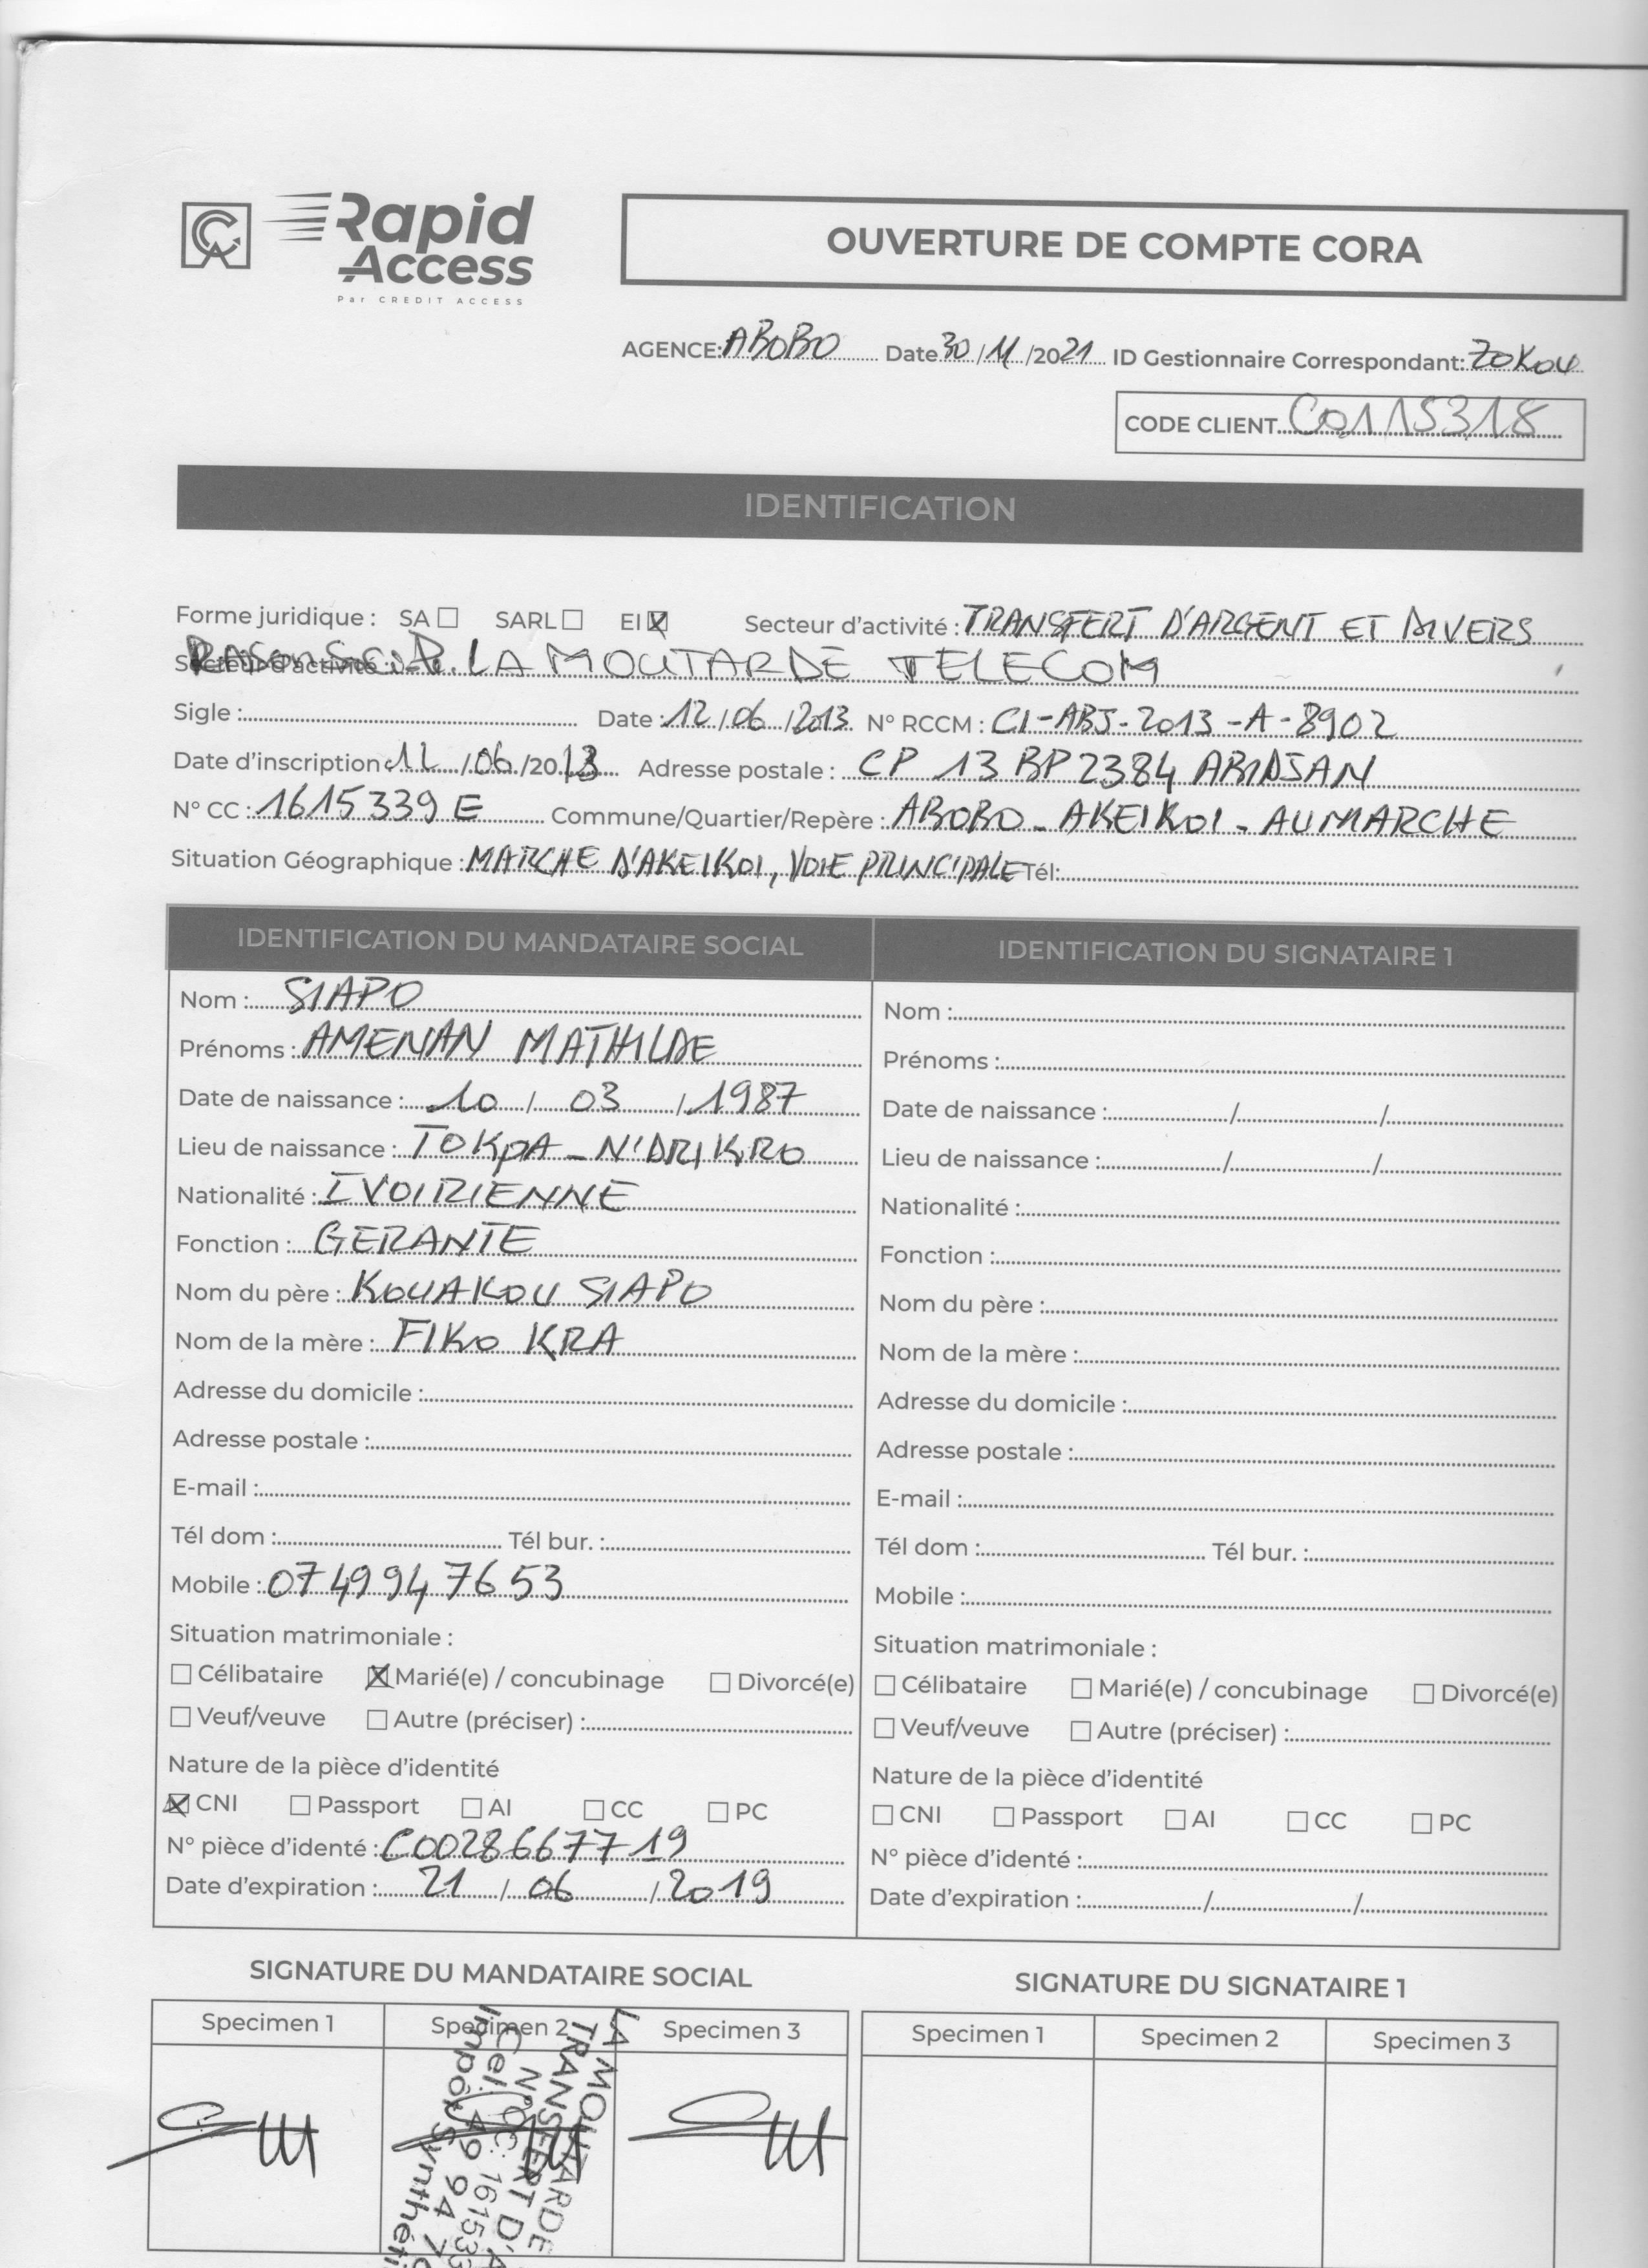 Rapid Access
Par CREDIT ACCESS
OUVERTURE DE COMPTE CORA
AGENCE: ABOBO Date 30/11/2021 ID Gestionnaire Correspondant: ZOKOU
CODE CLIENT C0115318
IDENTIFICATION
Forme juridique : SA ☐ SARL ☐ EI ☒ Secteur d'activité : TRANSFERT D'ARGENT ET DIVERS
LA MOUTARDE TELECOM
Sigle : Date : 12/06/2013 N° RCCM : CI-ABJ-2013-A-8902
Date d'inscription : 12/06/2013 Adresse postale : CP 13 BP 2384 ABIDJAN
N° CC : 1615339 E Commune/Quartier/Repère : ABOBO - AKEIKOI - AU MARCHE
Situation Géographique : MARCHE D'AKEIKOI, VOIE PRINCIPALE Tél:
IDENTIFICATION DU MANDATAIRE SOCIAL
Nom : SIAPO
Prénoms : AMENAN MATHILDE
Date de naissance : 10 / 03 / 1987
Lieu de naissance : TOKPA - N'DRIKRO
Nationalité : IVOIRIENNE
Fonction : GERANTE
Nom du père : KOUAKOU SIAPO
Nom de la mère : FIKO KRA
Adresse du domicile :
Adresse postale :
E-mail :
Tél dom : Tél bur. :
Mobile : 07 49 94 76 53
Situation matrimoniale :
☐ Célibataire ☒ Marié(e) / concubinage ☐ Divorcé(e)
☐ Veuf/veuve ☐ Autre (préciser) :
Nature de la pièce d'identité
☒ CNI ☐ Passport ☐ AI ☐ CC ☐ PC
N° pièce d'identé : C0028667719
Date d'expiration : 21 / 06 / 2019
IDENTIFICATION DU SIGNATAIRE 1
Nom :
Prénoms :
Date de naissance : / /
Lieu de naissance : / /
Nationalité :
Fonction :
Nom du père :
Nom de la mère :
Adresse du domicile :
Adresse postale :
E-mail :
Tél dom : Tél bur. :
Mobile :
Situation matrimoniale :
☐ Célibataire ☐ Marié(e) / concubinage ☐ Divorcé(e)
☐ Veuf/veuve ☐ Autre (préciser) :
Nature de la pièce d'identité
☐ CNI ☐ Passport ☐ AI ☐ CC ☐ PC
N° pièce d'identé :
Date d'expiration : / /
SIGNATURE DU MANDATAIRE SOCIAL
Specimen 1 Specimen 2 Specimen 3
LA MOUTARDE
TRANSFERT D'A
N° CC: 161533
Cel: 49 94 7
Impôt Synthéti
SIGNATURE DU SIGNATAIRE 1
Specimen 1 Specimen 2 Specimen 3